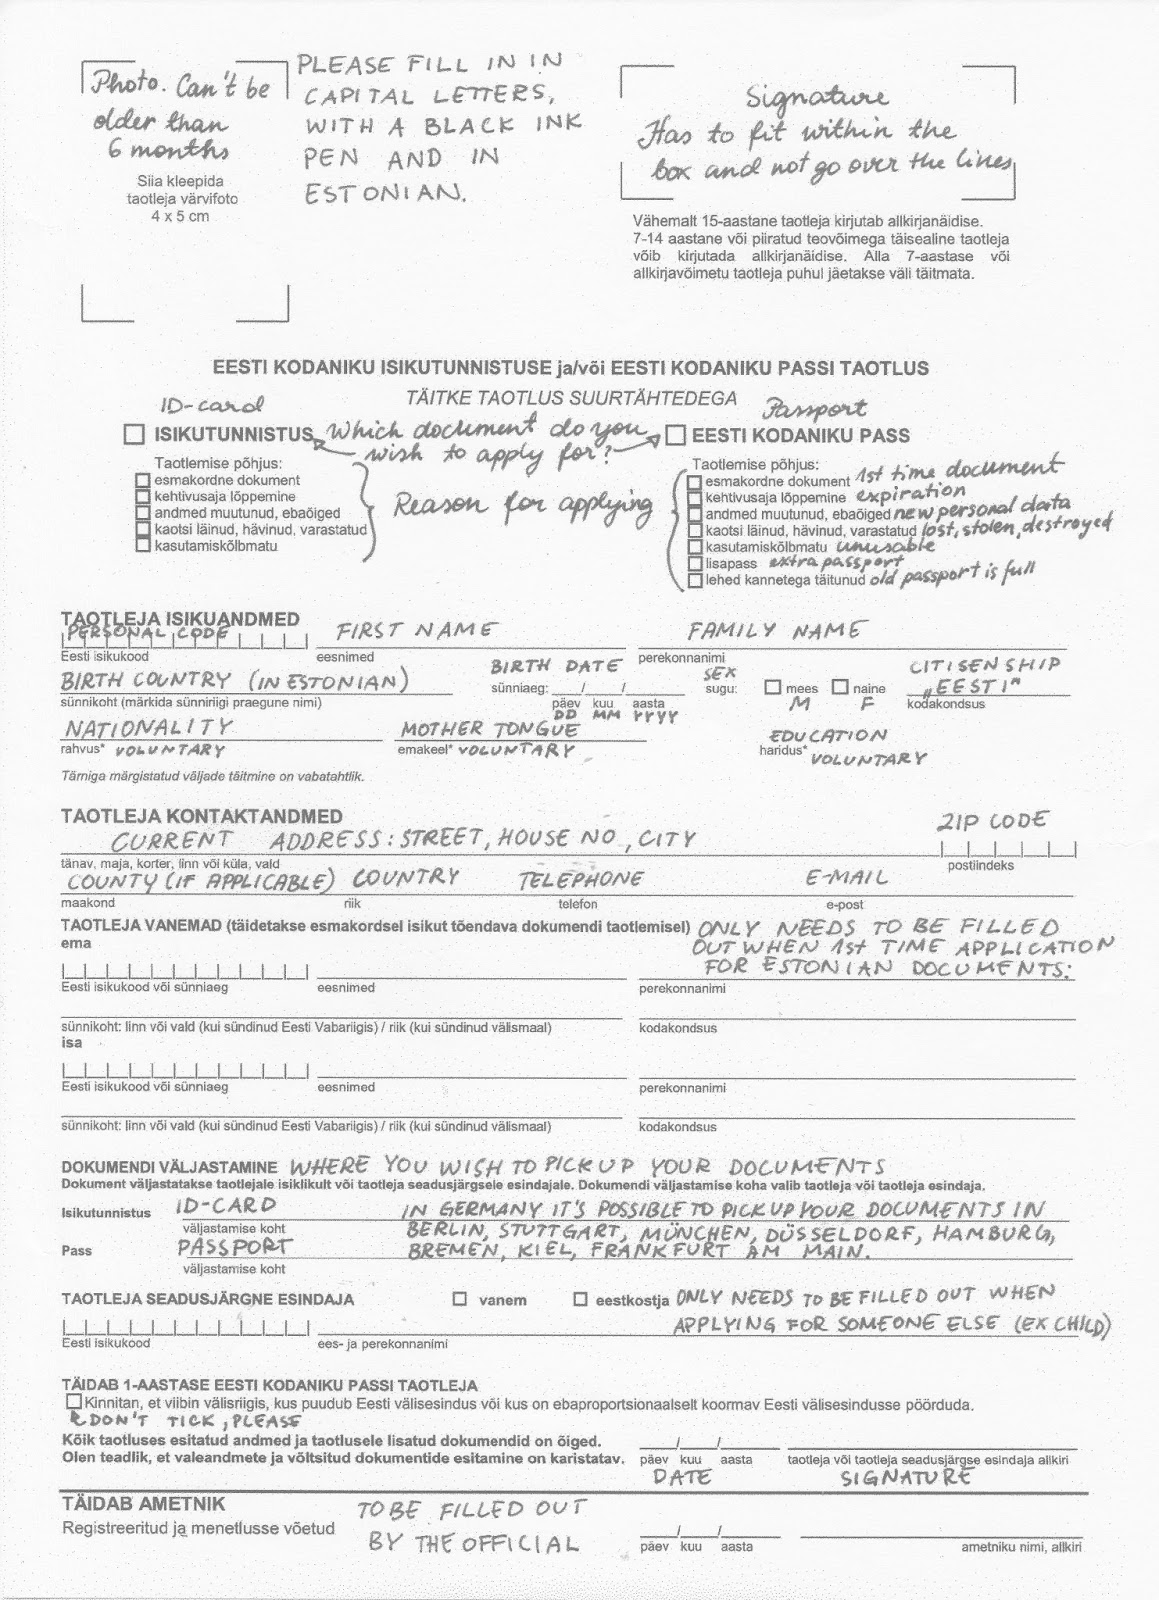 Photo. Can't be
older than
6 months
Siia kleepida
taotleja värvifoto
4 x 5 cm
PLEASE FILL IN IN
CAPITAL LETTERS,
WITH A BLACK INK
PEN AND IN
ESTONIAN.
Signature
Has to fit within the
box and not go over the lines
Vähemalt 15-aastane taotleja kirjutab allkirjanäidise.
7-14 aastane või piiratud teovõimega täisealine taotleja
võib kirjutada allkirjanäidise. Alla 7-aastase või
allkirjavõimetu taotleja puhul jäetakse väli täitmata.
EESTI KODANIKU ISIKUTUNNISTUSE ja/või EESTI KODANIKU PASSI TAOTLUS
TÄITKE TAOTLUS SUURTÄHTEDEGA
ID-card
ISIKUTUNNISTUS
Which document do you
wish to apply for?
Passport
EESTI KODANIKU PASS
Taotlemise põhjus:
esmakordne dokument
kehtivusaja lõppemine
andmed muutunud, ebaõiged
kaotsi läinud, hävinud, varastatud
kasutamiskõlbmatu
Reason for applying
Taotlemise põhjus:
esmakordne dokument 1st time document
kehtivusaja lõppemine expiration
andmed muutunud, ebaõiged new personal data
kaotsi läinud, hävinud, varastatud lost, stolen, destroyed
kasutamiskõlbmatu unusable
lisapass extra passport
lehed kannetega täitunud old passport is full
TAOTLEJA ISIKUANDMED
PERSONAL CODE FIRST NAME FAMILY NAME
Eesti isikukood eesnimed perekonnanimi
BIRTH COUNTRY (IN ESTONIAN) BIRTH DATE SEX CITISENSHIP
sünniaeg: __/__/__ sugu: mees naine „EESTI"
sünnikoht (märkida sünniriigi praegune nimi) päev kuu aasta M F kodakondsus
DD MM YYYY
NATIONALITY MOTHER TONGUE EDUCATION
rahvus* VOLUNTARY emakeel* VOLUNTARY haridus* VOLUNTARY
Tärniga märgistatud väljade täitmine on vabatahtlik.
TAOTLEJA KONTAKTANDMED
CURRENT ADDRESS: STREET, HOUSE NO, CITY ZIP CODE
tänav, maja, korter, linn või küla, vald postiindeks
COUNTY (IF APPLICABLE) COUNTRY TELEPHONE E-MAIL
maakond riik telefon e-post
TAOTLEJA VANEMAD (täidetakse esmakordsel isikut tõendava dokumendi taotlemisel) ONLY NEEDS TO BE FILLED
ema OUT WHEN 1st TIME APPLICATION
FOR ESTONIAN DOCUMENTS.
Eesti isikukood või sünniaeg eesnimed perekonnanimi
sünnikoht: linn või vald (kui sündinud Eesti Vabariigis) / riik (kui sündinud välismaal) kodakondsus
isa
Eesti isikukood või sünniaeg eesnimed perekonnanimi
sünnikoht: linn või vald (kui sündinud Eesti Vabariigis) / riik (kui sündinud välismaal) kodakondsus
DOKUMENDI VÄLJASTAMINE WHERE YOU WISH TO PICK UP YOUR DOCUMENTS
Dokument väljastatakse taotlejale isiklikult või taotleja seadusjärgsele esindajale. Dokumendi väljastamise koha valib taotleja või taotleja esindaja.
Isikutunnistus ID-CARD IN GERMANY IT'S POSSIBLE TO PICK UP YOUR DOCUMENTS IN
väljastamise koht BERLIN, STUTTGART, MÜNCHEN, DÜSSELDORF, HAMBURG,
Pass PASSPORT BREMEN, KIEL, FRANKFURT AM MAIN.
väljastamise koht
TAOTLEJA SEADUSJÄRGNE ESINDAJA vanem eestkostja ONLY NEEDS TO BE FILLED OUT WHEN
APPLYING FOR SOMEONE ELSE (EX CHILD)
Eesti isikukood ees- ja perekonnanimi
TÄIDAB 1-AASTASE EESTI KODANIKU PASSI TAOTLEJA
Kinnitan, et viibin välisriigis, kus puudub Eesti välisesindus või kus on ebaproportsionaalselt koormav Eesti välisesindusse pöörduda.
DON'T TICK, PLEASE
Kõik taotluses esitatud andmed ja taotlusele lisatud dokumendid on õiged.
Olen teadlik, et valeandmete ja võltsitud dokumentide esitamine on karistatav. päev kuu aasta taotleja või taotleja seadusjärgse esindaja allkiri
DATE SIGNATURE
TÄIDAB AMETNIK TO BE FILLED OUT
Registreeritud ja menetlusse võetud BY THE OFFICIAL
päev kuu aasta ametniku nimi, allkiri